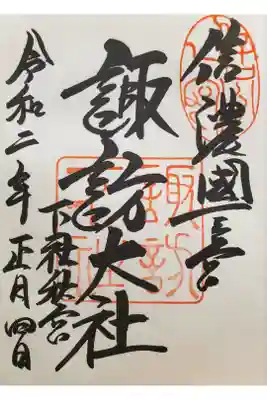 信濃國一之宮
諏訪大社
下社秋宮
令和二年正月四日